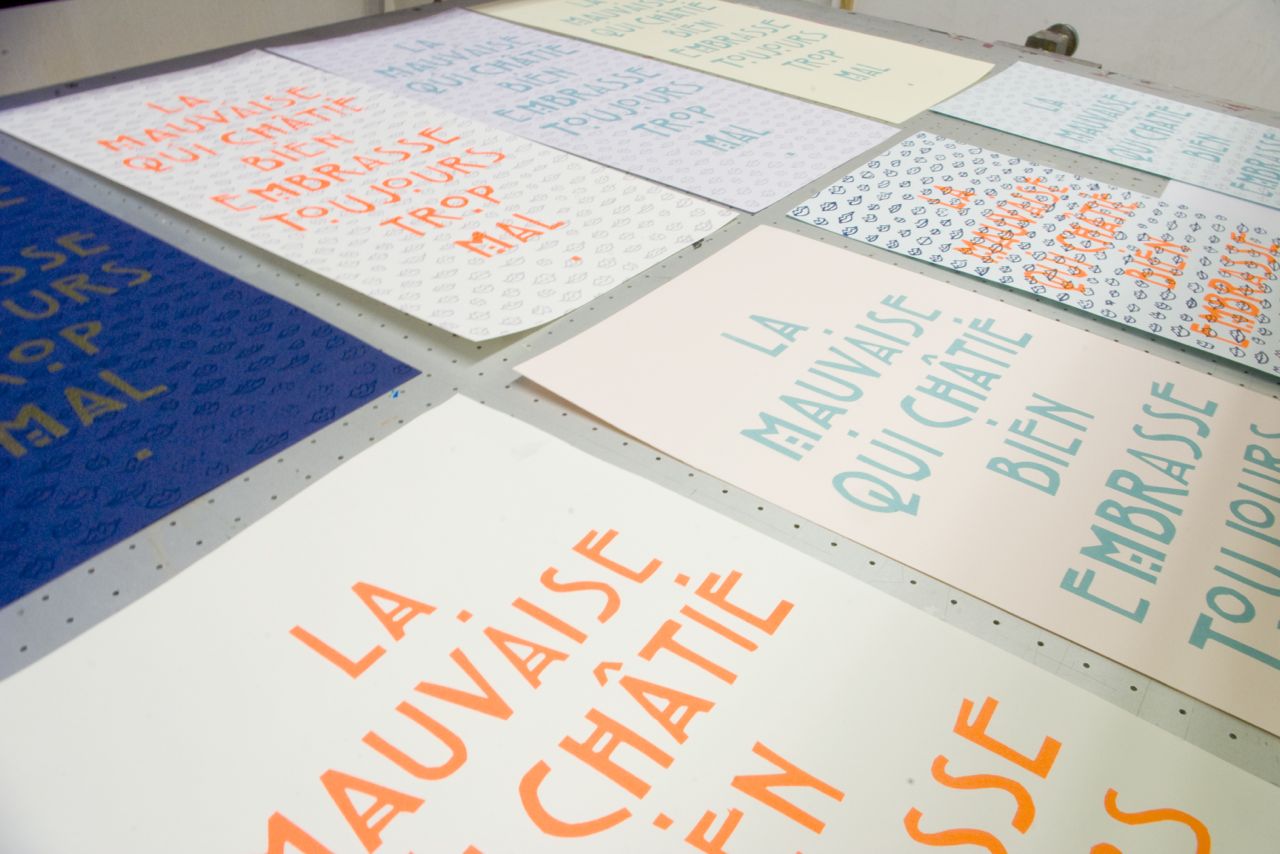 LA
MAUVAISE
QUI CHÂTIE
BIEN
EMBRASSE
TOUJOURS
TROP
MAL
LA
MAUVAISE
QUI CHÂTIE
BIEN
EMBRASSE
TOUJOURS
TROP
MAL.
LA
MAUVAISE
QUI CHÂTIE
BIEN
EMBRASSE
TOUJOURS
TROP
MAL.
LA
MAUVAISE
QUI CHÂTIE
BIEN
EMBRASSE
LA
MAUVAISE
QUI CHÂTIE
BIEN
EMBRASSE
SSE
OURS
ROP
MAL.
LA
MAUVAISE
QUI CHÂTIE
BIEN
EMBRASSE
TOUJOURS
LA
MAUVAISE
CHÂTIE
IEN
SSE